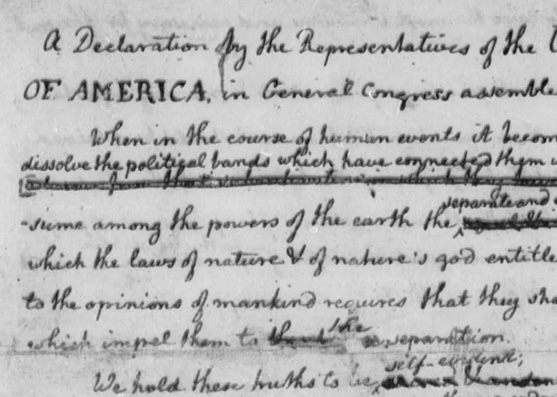 A Declaration by the Representatives of the
OF AMERICA, in General Congress assemble
When in the course of human events it becom
dissolve the political bands which have connected them
separate and
-sume among the powers of the earth the
which the laws of nature & of nature's god entitle
to the opinions of mankind requires that they sho
which impel them to the separation.
self-evident;
We hold these truths to be